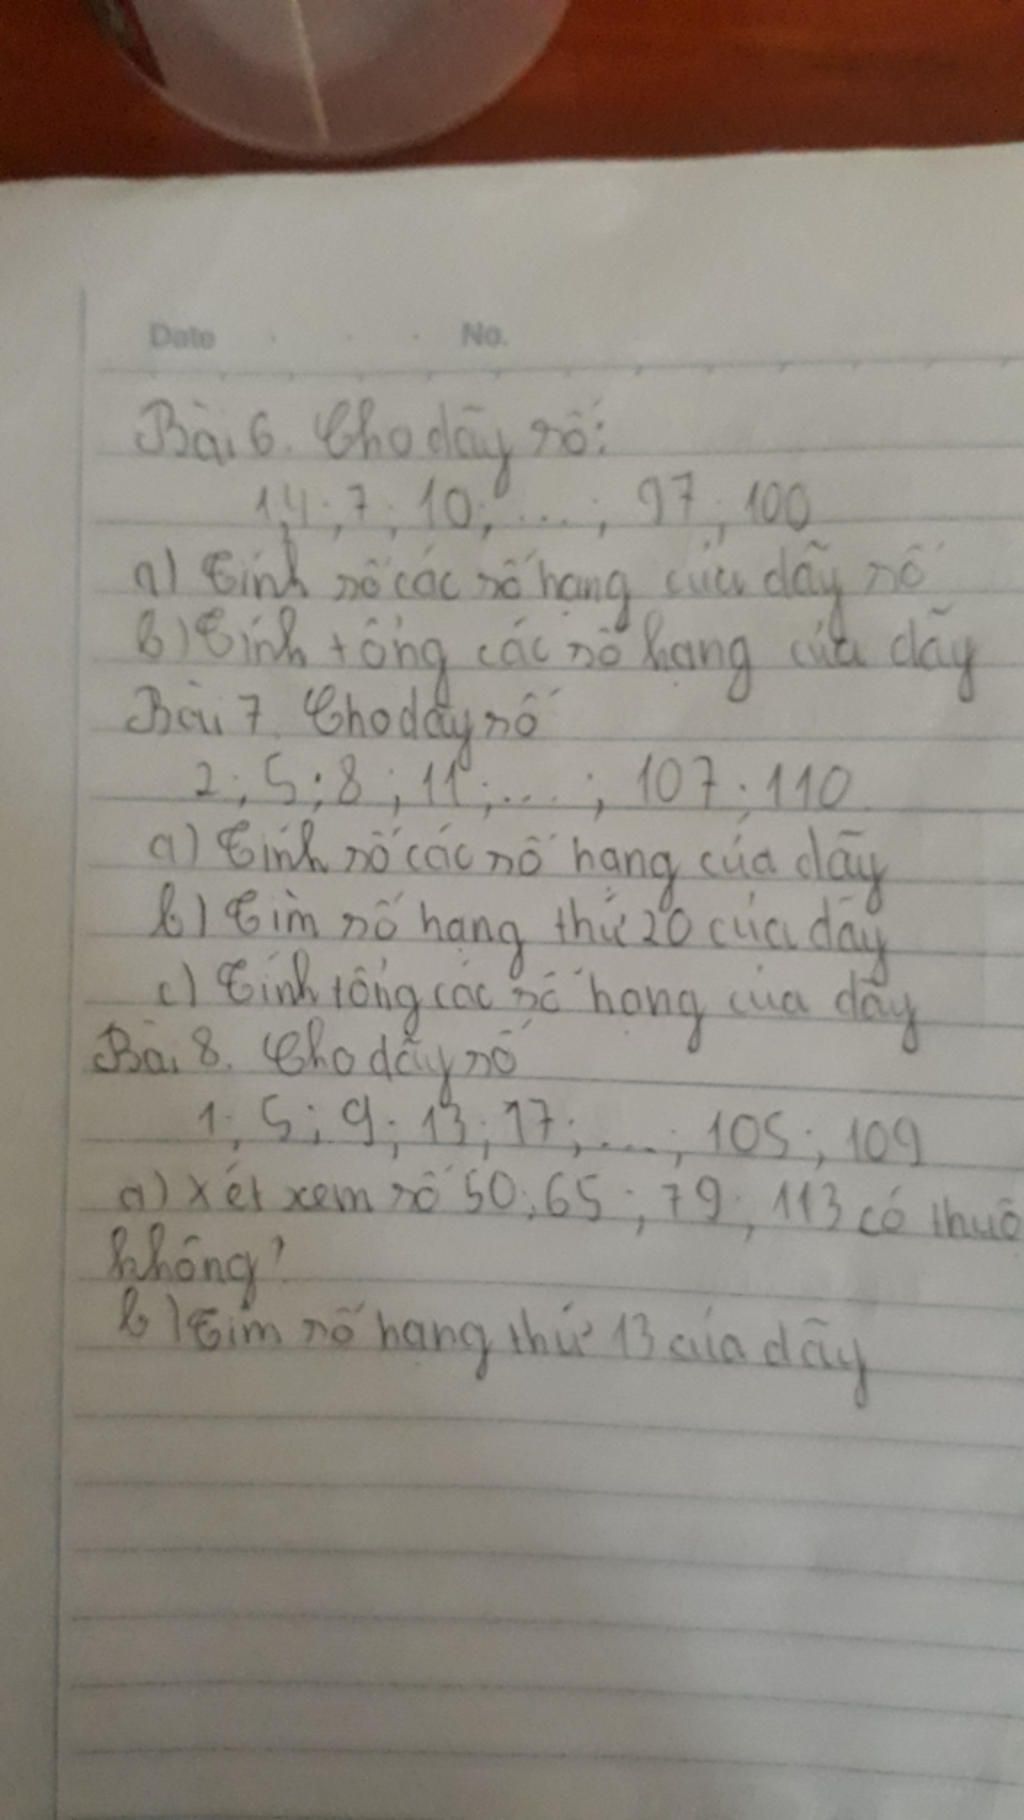 Date No.
Bài 6. Cho dãy số:
1,4; 7; 10; ...; 97; 100
a) Tính số các số hạng của dãy số
b) Tính tổng các số hạng của dãy
Bài 7. Cho dãy số
2; 5; 8; 11; ...; 107; 110
a) Tính số các số hạng của dãy
b) Tìm số hạng thứ 20 của dãy
c) Tính tổng các số hạng của dãy
Bài 8. Cho dãy số
1; 5; 9; 13; 17; ...; 105; 109
a) Xét xem số 50; 65; 79; 113 có thuộ
không?
b) Tìm số hạng thứ 13 của dãy